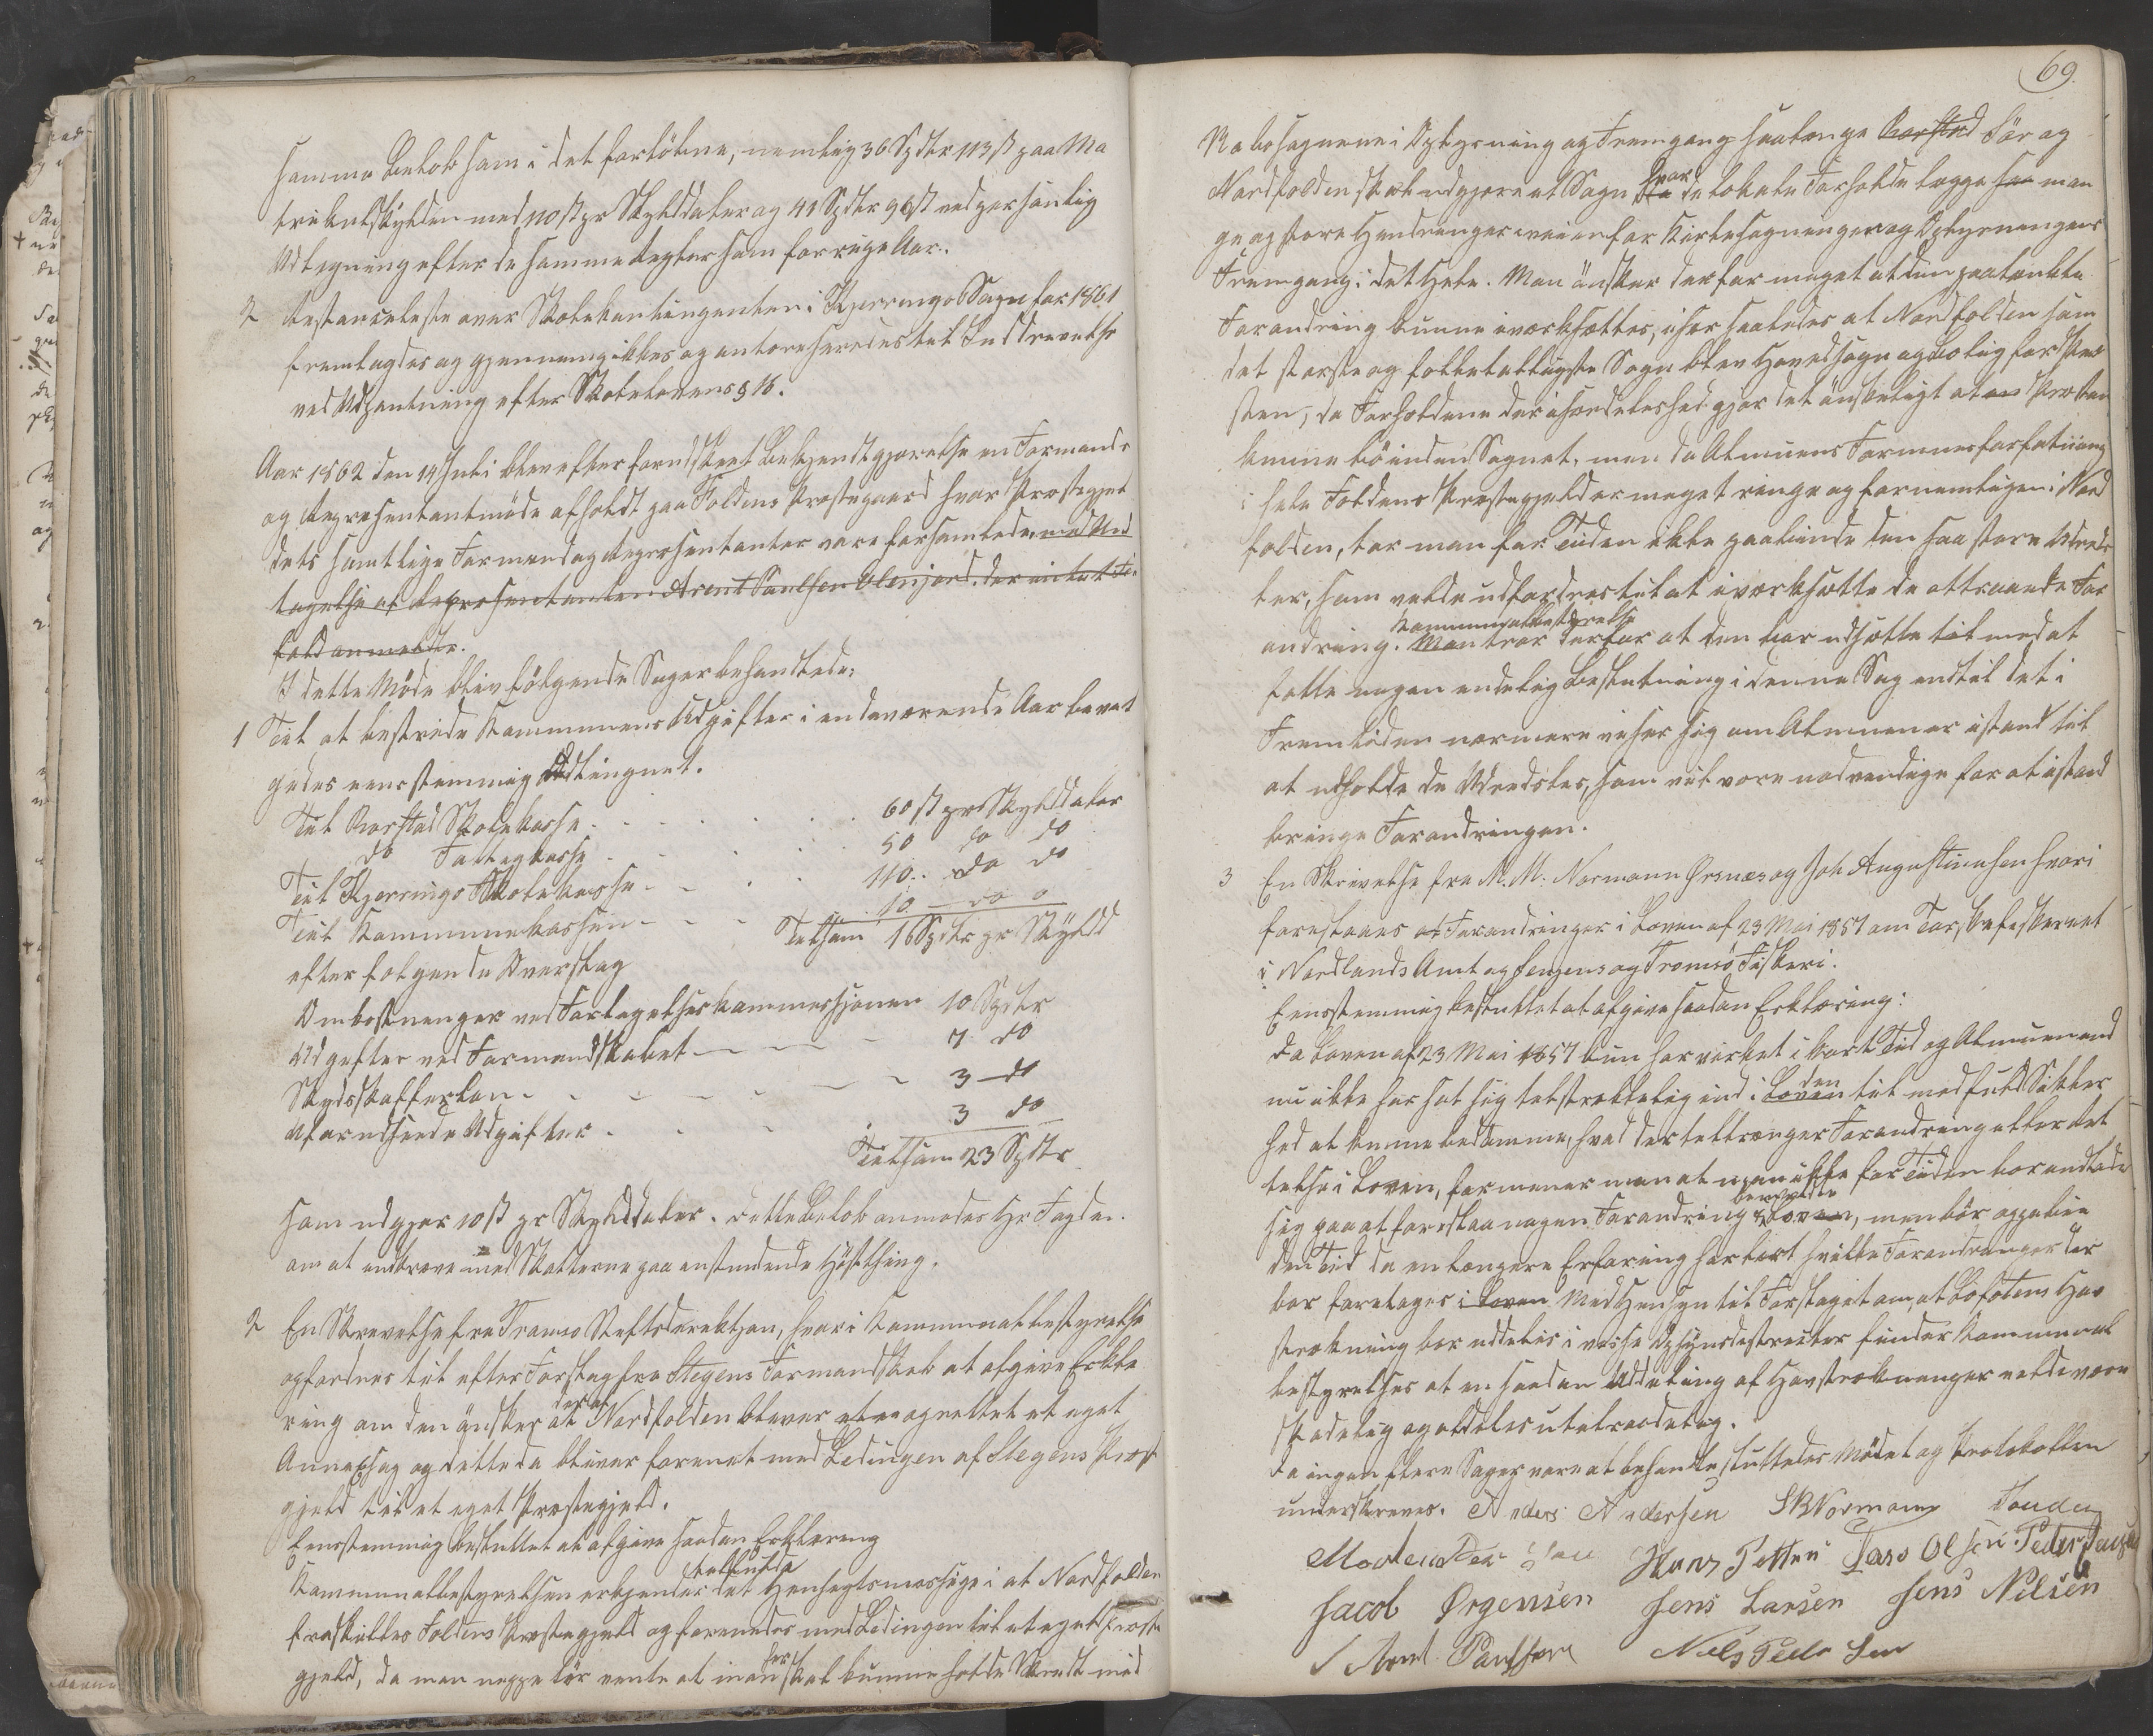 samme Beløb som i det forløbne, nemlig 36 Spdlr 113 ß paa Ma
trikulskylden med 110 ß pr Skylddaler og 41 Spdlr 96 ß ved personlig
Udligning efter de samme Regler som forrige Aar.
2 Restanceliste over Skolekontingenter i Kjerringø Sogn for 1861
fremlagdes og gjennemgikkes og autoriseredes til Inddrivelse
ved Udpantning efter Skolelovens § 16.
Aar 1862 den 14 Juli blev efter forudskeet Bekjendtgjørelse en Formands
og Repræsentantmøde afholdt paa Foldens Præstegaard hvor Præstegjel
dets samtlige Formænd og Repræsentanter vare forsamlede, med Und
tagelse af Repræsentanten Arent Paulsen der intet For
fald anmeldte.
I dette Møde blev følgende Sager behandlede:
1 Til at bestride Kommunens Udgifter i indeværende Aar bevil
gedes eenstemmig Udlignet.
Til Rørstad Skolekasse . . . . . . 60 ß pr Skylddaler
do Fattigkasse . . . . 50 do do
Til Kjerringø Skolekasse . . . 110 do do
Til Kommunekassen . . . 10 do o
Tilsam 1 Spdlr pr Skyld
efter følgende Overslag
Omkostninger ved Forligelseskommissjonen 10 Spdlr
Udgifter ved Formandskabet 7 do
Skydsskafferløn 3 do
Uforudseede Udgifter 3 do
Tilsam 23 Spdlr
som udgjør 10 ß pr Skylddaler. Dette Beløb anmodes Hr Fogden
om at indkræve med Skatterne paa anstundende Høstthing.
2 En Skrivelse fra Tromsø Stiftsdirektion, hvori Kommunalbestyrelse
opfordres til efter Forslag fra Stegens Formandskab at afgive Erklæ
ring om den ønsker at Nordfolden bliver oprettet et eget
Annexsogn og dette da bliver forenet med Ledingen af Stegens Præst
gjeld til et eget Præstegjeld.
Eenstemmig besluttet at afgive saadan Erklæring
Kommunalbestyrelsen erkjender det Hensigtsmæssige i at Nordfolden
fraskilles Foldens Præstegjeld og forenedes med Ledingen til et eget Præste
gjeld, da man neppe tør vente at man her skal kunne holde Skridt med
69.
Nabosognene i Oplysning og Fremgang saalænge Rørstad Sør og
Nordfolden skal udgjøre et Sogn hvor de lokale Forholde lægge saa man
ge og store Hindringer i veien for Kirkesøgningen og Oplysningens
Fremgang i det Hele. Man ønsker derfor meget at den paatænkte
Forandring kunne iværksættes, især saaledes at Nordfolden som
det største og folketalligste Sogn blev Hovedsogn og Bolig for Præ
sten, da Forholdene der isærdeleshed gjør det ønskeligt at en Præsten
kunne bo inden Sognet, men da Almuens Formuesforfatning
i hele Foldens Præstegjeld er meget ringe og fornemligen i Nord
folden, tør man for Tiden ikke paabinde den saa store Udred
ler, som vilde udfordres til at iværksætte de attraaede For
andring. Man Kommunalbestyrelse troer derfor at den bør udsætte til med at
fatte nogen endelig Beslutning i denne Sag indtil det i
Fremtiden nærmere viser sig om Almuen er istand til
at udholde de Udredsler, som vil være nødvendige for at istand
bringe Forandringen.
3 En Skrivelse fra M. M. Normann Ørsnæs og Joh Augustinusen hvori
foreslaaes at Forandringer i Loven af 23 Mai 1857 om Torskefiskeriet
i Nordlands Amt og Senjens og Tromsø Fiskeri.
Eenstemmig besluttet at afgive saadan Erklæring:
Da Loven af 23 Mai 1857 kun har virket i kort Tid og Almuen end
nu ikke har sat sig tilstrækkelig ind i Loven den til med fuld Sikker
hed at kunne bedømme, hvad der tiltrænger Forandring eller Ud
telse i Loven, formener man at man ikke for Tiden bør indlade
sig paa at foreslaa nogen Forandring i Loven, men bør oppebie
den Tid da en længere Erfaring har lært hvilke Forandringer der
bør foretages i Loven. Med Hensyn til Forslaget om, at Lofotens Hav
strækning bør uddeles i visse Opsynsdistrikter finder Kommunal
bestyrelsen at en saadan Uddeling af Havstrækninger vilde være
skadelig og aldeles utilraadelig.
Da ingen flere Sager vare at behandle sluttedes Mødet og Protokollen
underskreves. Anders Andersen SRNormann
Hans Petter Lars Olsen Peder
Jacob Ørgensen Jens Larsen Jens Nilsen
Arnt Paulsen Niels Pedersen